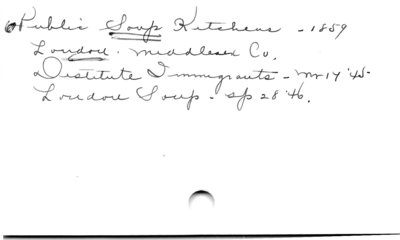 Public Soup Kitchens - 1859
London. Middlesex Co.
Destitute Immigrants - mr 17 '45-
London Soup - sp 28 '46.